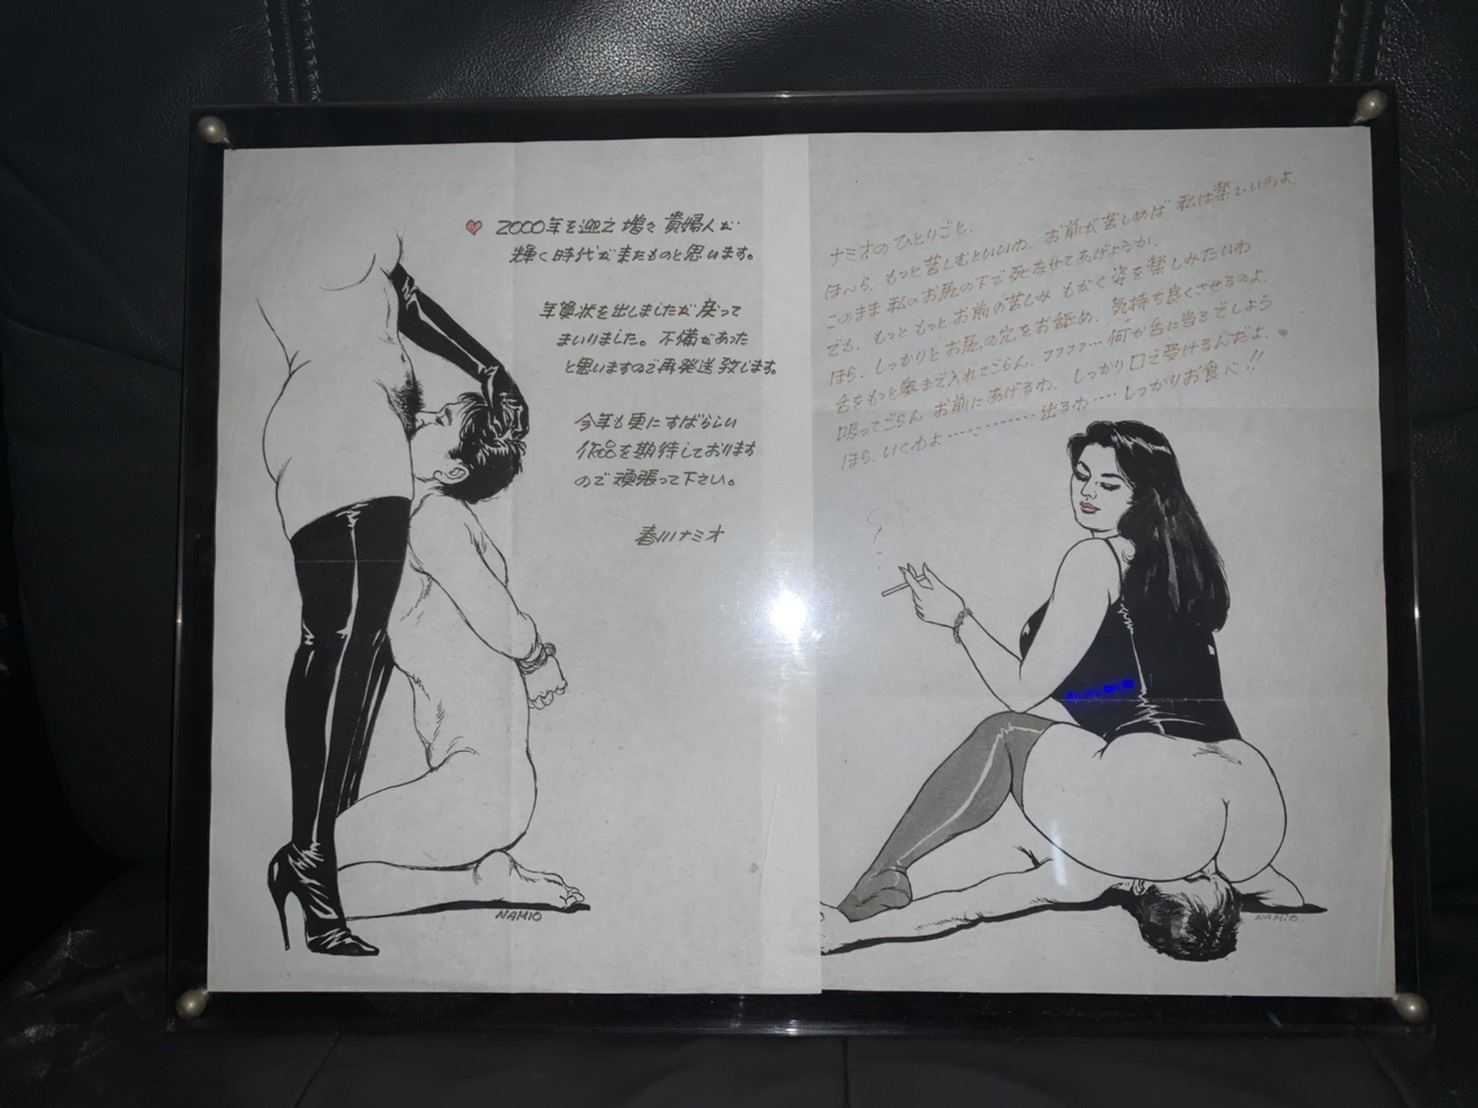 ♥ 2000年を迎え増々貴婦人が
輝く時代が来たものと思います。
年賀状を出しましたが戻って
まいりました。不備があった
と思いますので再発送致します。
今年も更にすばらしい
作品を期待しております
ので頑張って下さい。
春川ナミオ
NAMIO
ナミオのひとりごと、
ほ〜ら、もっと苦しむといいわ、お前が苦しめば私は楽しいのよ、
このまま私のお尻の下で死なせてあげようか、
でも、もっともっとお前の苦しみもがく姿を楽しみたいわ
ほら、しっかりとお尻の穴をお舐め、気持ち良くさせるのよ、
舌をもっと奥まで入れてごらん、フフフフ…何か舌に当るでしょう
吸ってごらん お前にあげるわ、しっかり口で受けるんだよ、
ほら、いくわよ…………出るわ……しっかりお食べ!!
NAMIO